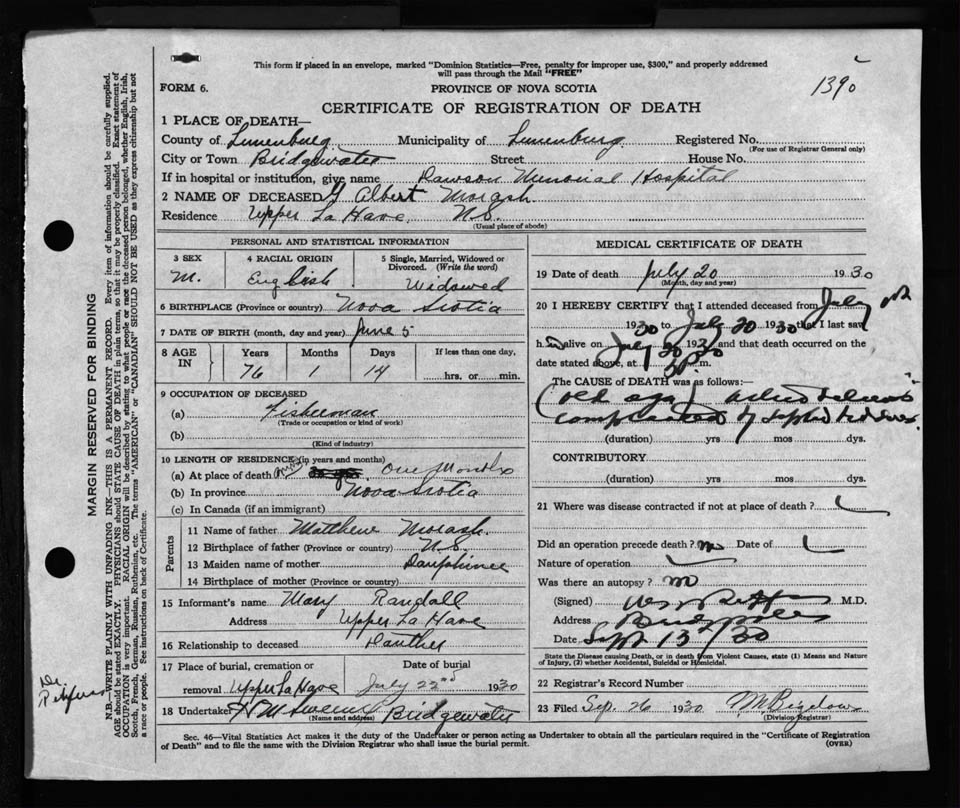 This form if placed in an envelope, marked "Dominion Statistics—Free, penalty for improper use, $300," and properly addressed
will pass through the Mail "FREE"
139
FORM 6.
PROVINCE OF NOVA SCOTIA
CERTIFICATE OF REGISTRATION OF DEATH
1 PLACE OF DEATH—
County of Lunenburg Municipality of Lunenburg Registered No.
(For use of Registrar General only)
City or Town Bridgewater Street House No.
If in hospital or institution, give name Dawson Memorial Hospital
2 NAME OF DECEASED Albert Morash
Residence Upper La Have, N.S.
(Usual place of abode)
PERSONAL AND STATISTICAL INFORMATION
3 SEX
M.
4 RACIAL ORIGIN
English
5 Single, Married, Widowed or
Divorced. (Write the word)
Widowed
6 BIRTHPLACE (Province or country) Nova Scotia
7 DATE OF BIRTH (month, day and year) June 5
8 AGE
IN
Years Months Days If less than one day,
76 1 14 hrs. or min.
9 OCCUPATION OF DECEASED
(a) Fisherman
(Trade or occupation or kind of work)
(b)
(Kind of industry)
10 LENGTH OF RESIDENCE (in years and months)
(a) At place of death One Month
(b) In province Nova Scotia
(c) In Canada (if an immigrant)
Parents
11 Name of father Matthew Morash
12 Birthplace of father (Province or country) N.S.
13 Maiden name of mother Dauphinee
14 Birthplace of mother (Province or country)
15 Informant's name Mary Randall
Address Upper La Have
16 Relationship to deceased Dauther
17 Place of burial, cremation or Date of burial
removal Upper La Have July 22nd 1930
18 Undertaker Bridgewater
(Name and address)
MEDICAL CERTIFICATE OF DEATH
19 Date of death July 20 1930
(Month, day and year)
20 I HEREBY CERTIFY that I attended deceased from July
1930 to July 20 1930 that I last saw
h im alive on July 20 1930 and that death occurred on the
date stated above, at m.
The CAUSE of DEATH was as follows:—
(old age)
complicated by
(duration) yrs mos dys.
CONTRIBUTORY
(duration) yrs mos dys.
21 Where was disease contracted if not at place of death?
Did an operation precede death? no Date of
Nature of operation
Was there an autopsy? no
(Signed) M.D.
Address Bridgewater
Date Sept 13/30
State the Disease causing Death, or in death from Violent Causes, state (1) Means and Nature
of Injury, (2) whether Accidental, Suicidal or Homicidal.
22 Registrar's Record Number
23 Filed Sep. 26 1930 M. Bigelow
(Division Registrar)
Sec. 46—Vital Statistics Act makes it the duty of the Undertaker or person acting as Undertaker to obtain all the particulars required in the "Certificate of Registration
of Death" and to file the same with the Division Registrar who shall issue the burial permit. (OVER)
MARGIN RESERVED FOR BINDING
N.B.—WRITE PLAINLY WITH UNFADING INK—THIS IS A PERMANENT RECORD. Every item of information should be carefully supplied.
AGE should be stated EXACTLY. PHYSICIANS should STATE CAUSE OF DEATH in plain terms, so that it may be properly classified. Exact statement of
OCCUPATION is very important. RACIAL ORIGIN will be described by stating to what people or race the deceased person belonged, whether English, Irish,
Scotch, French, German, Russian, Ruthenian, etc. The terms "AMERICAN" or "CANADIAN" SHOULD NOT BE USED as they express citizenship but not
a race or people. See instructions on back of Certificate.
Dr.